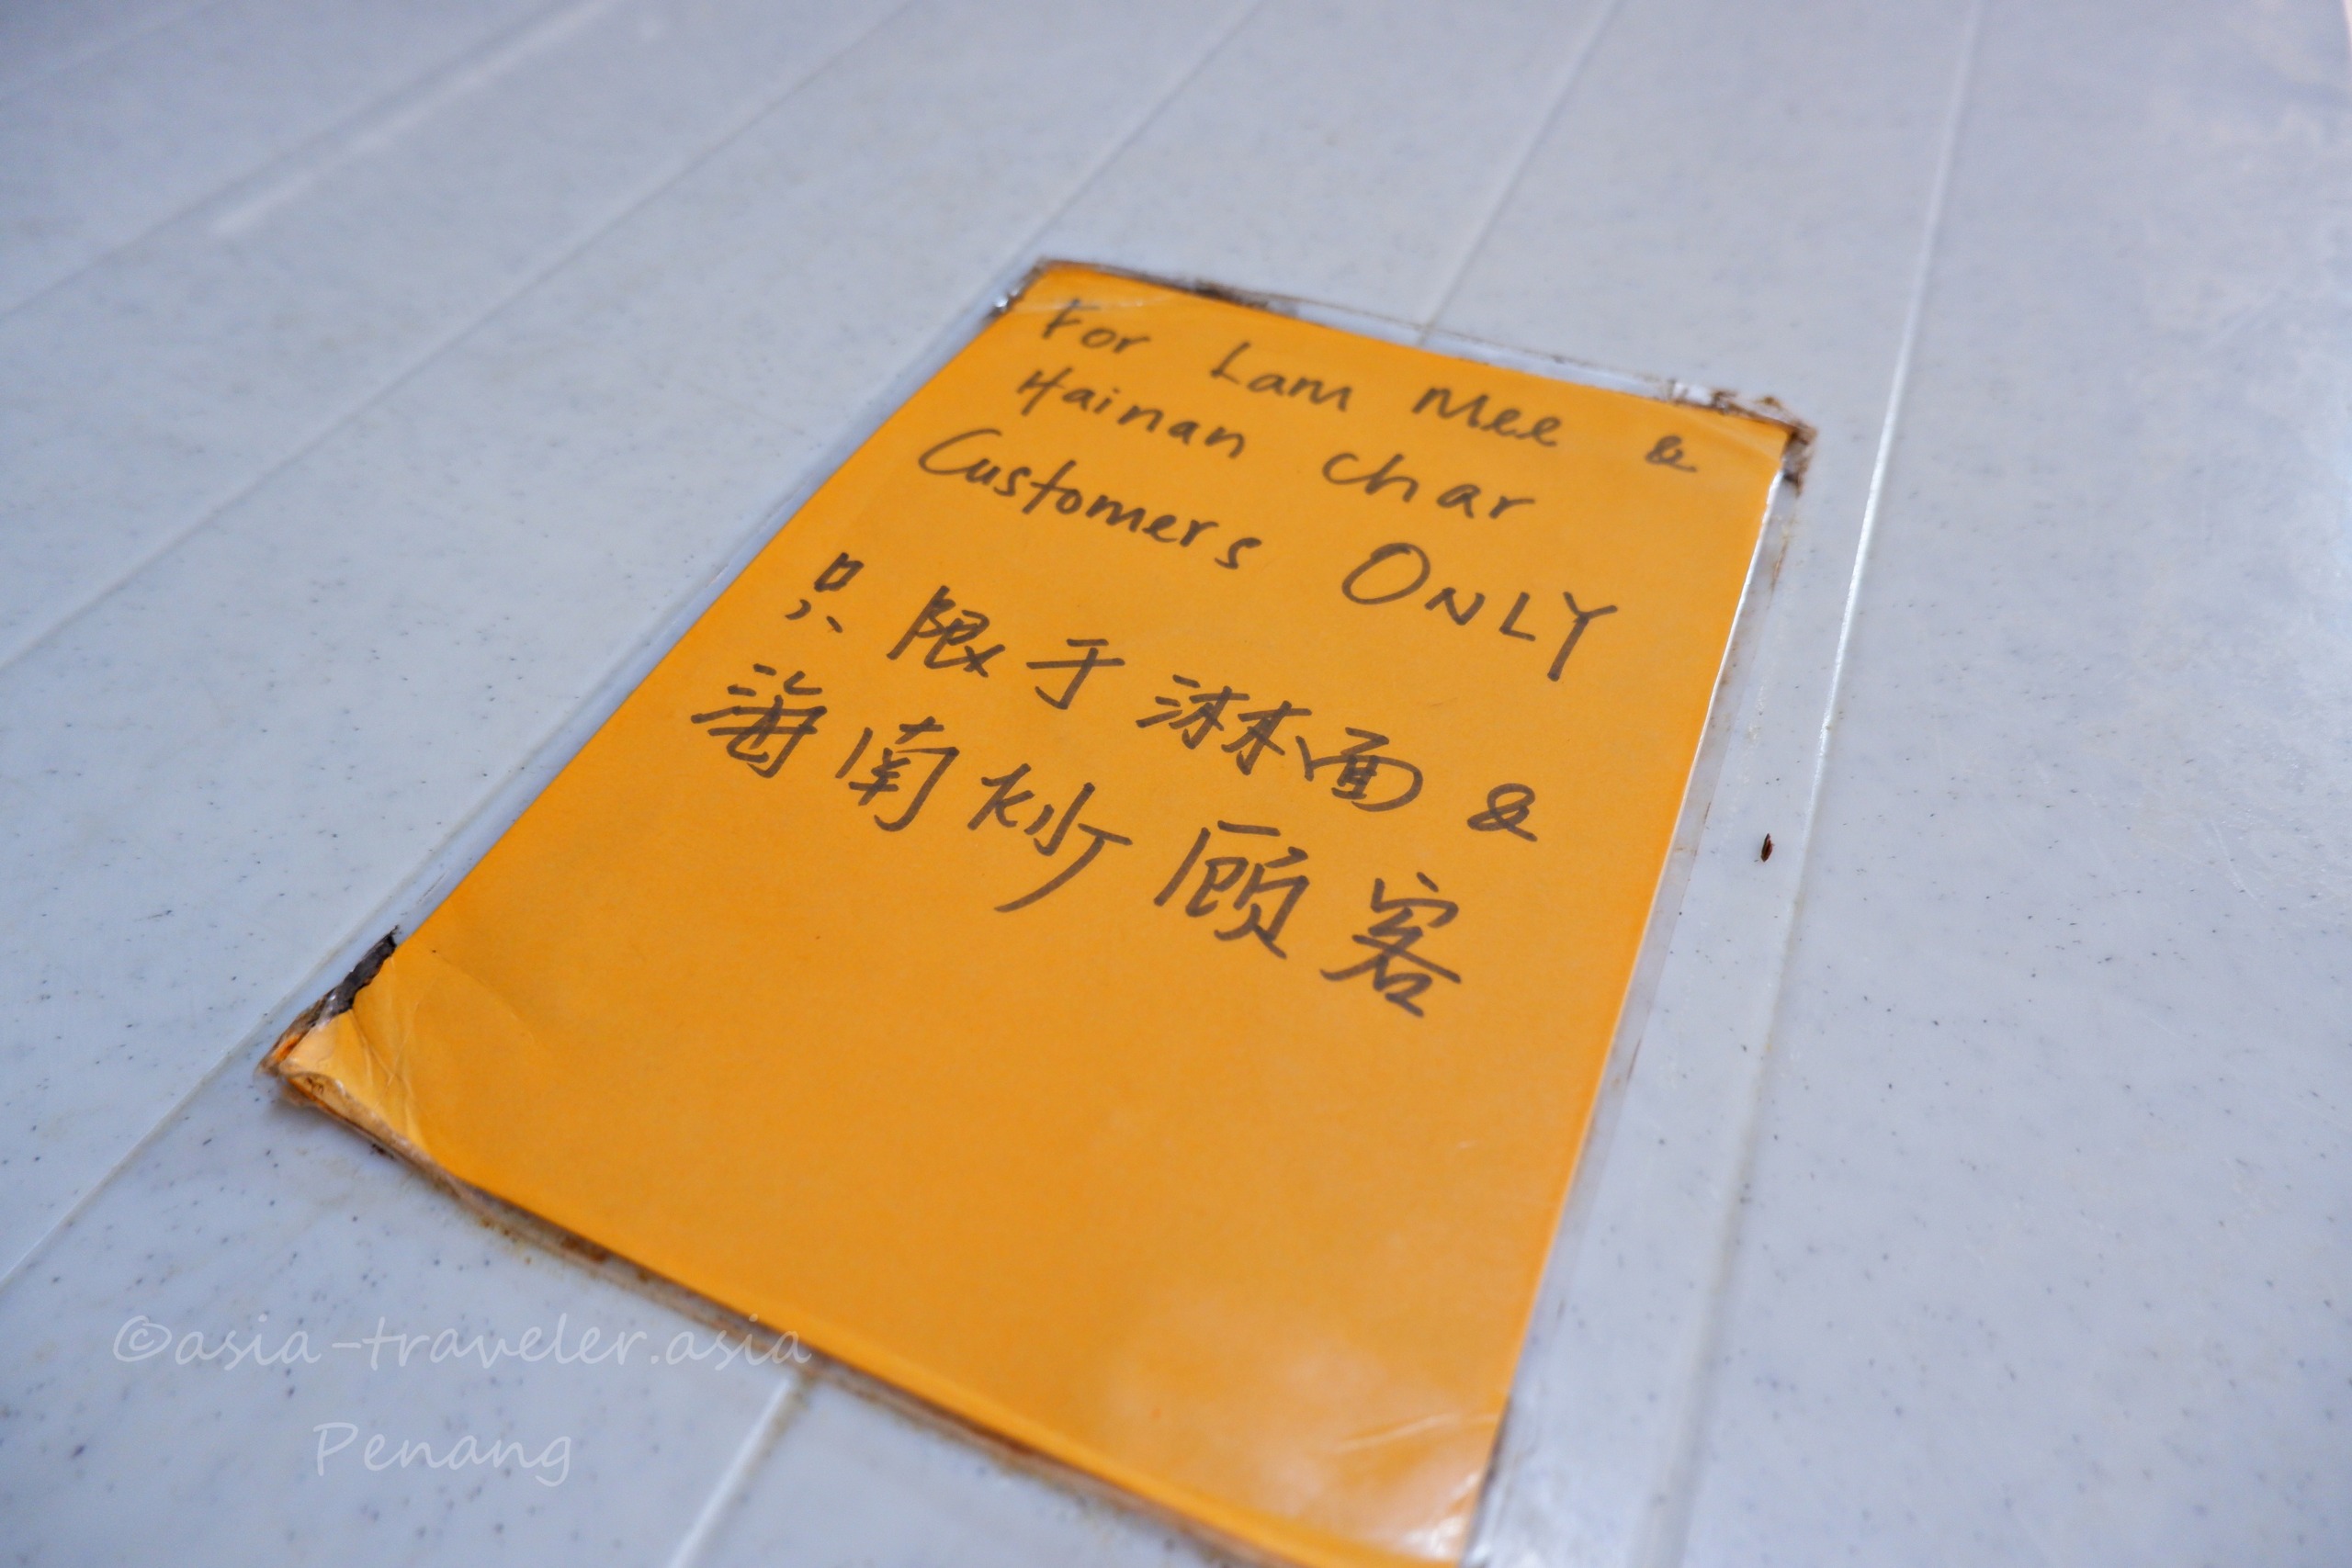 For Lam Mee &
Hainan char
Customers ONLY
只限于淋面 &
海南炒顾客
©asia-traveler.asia
Penang